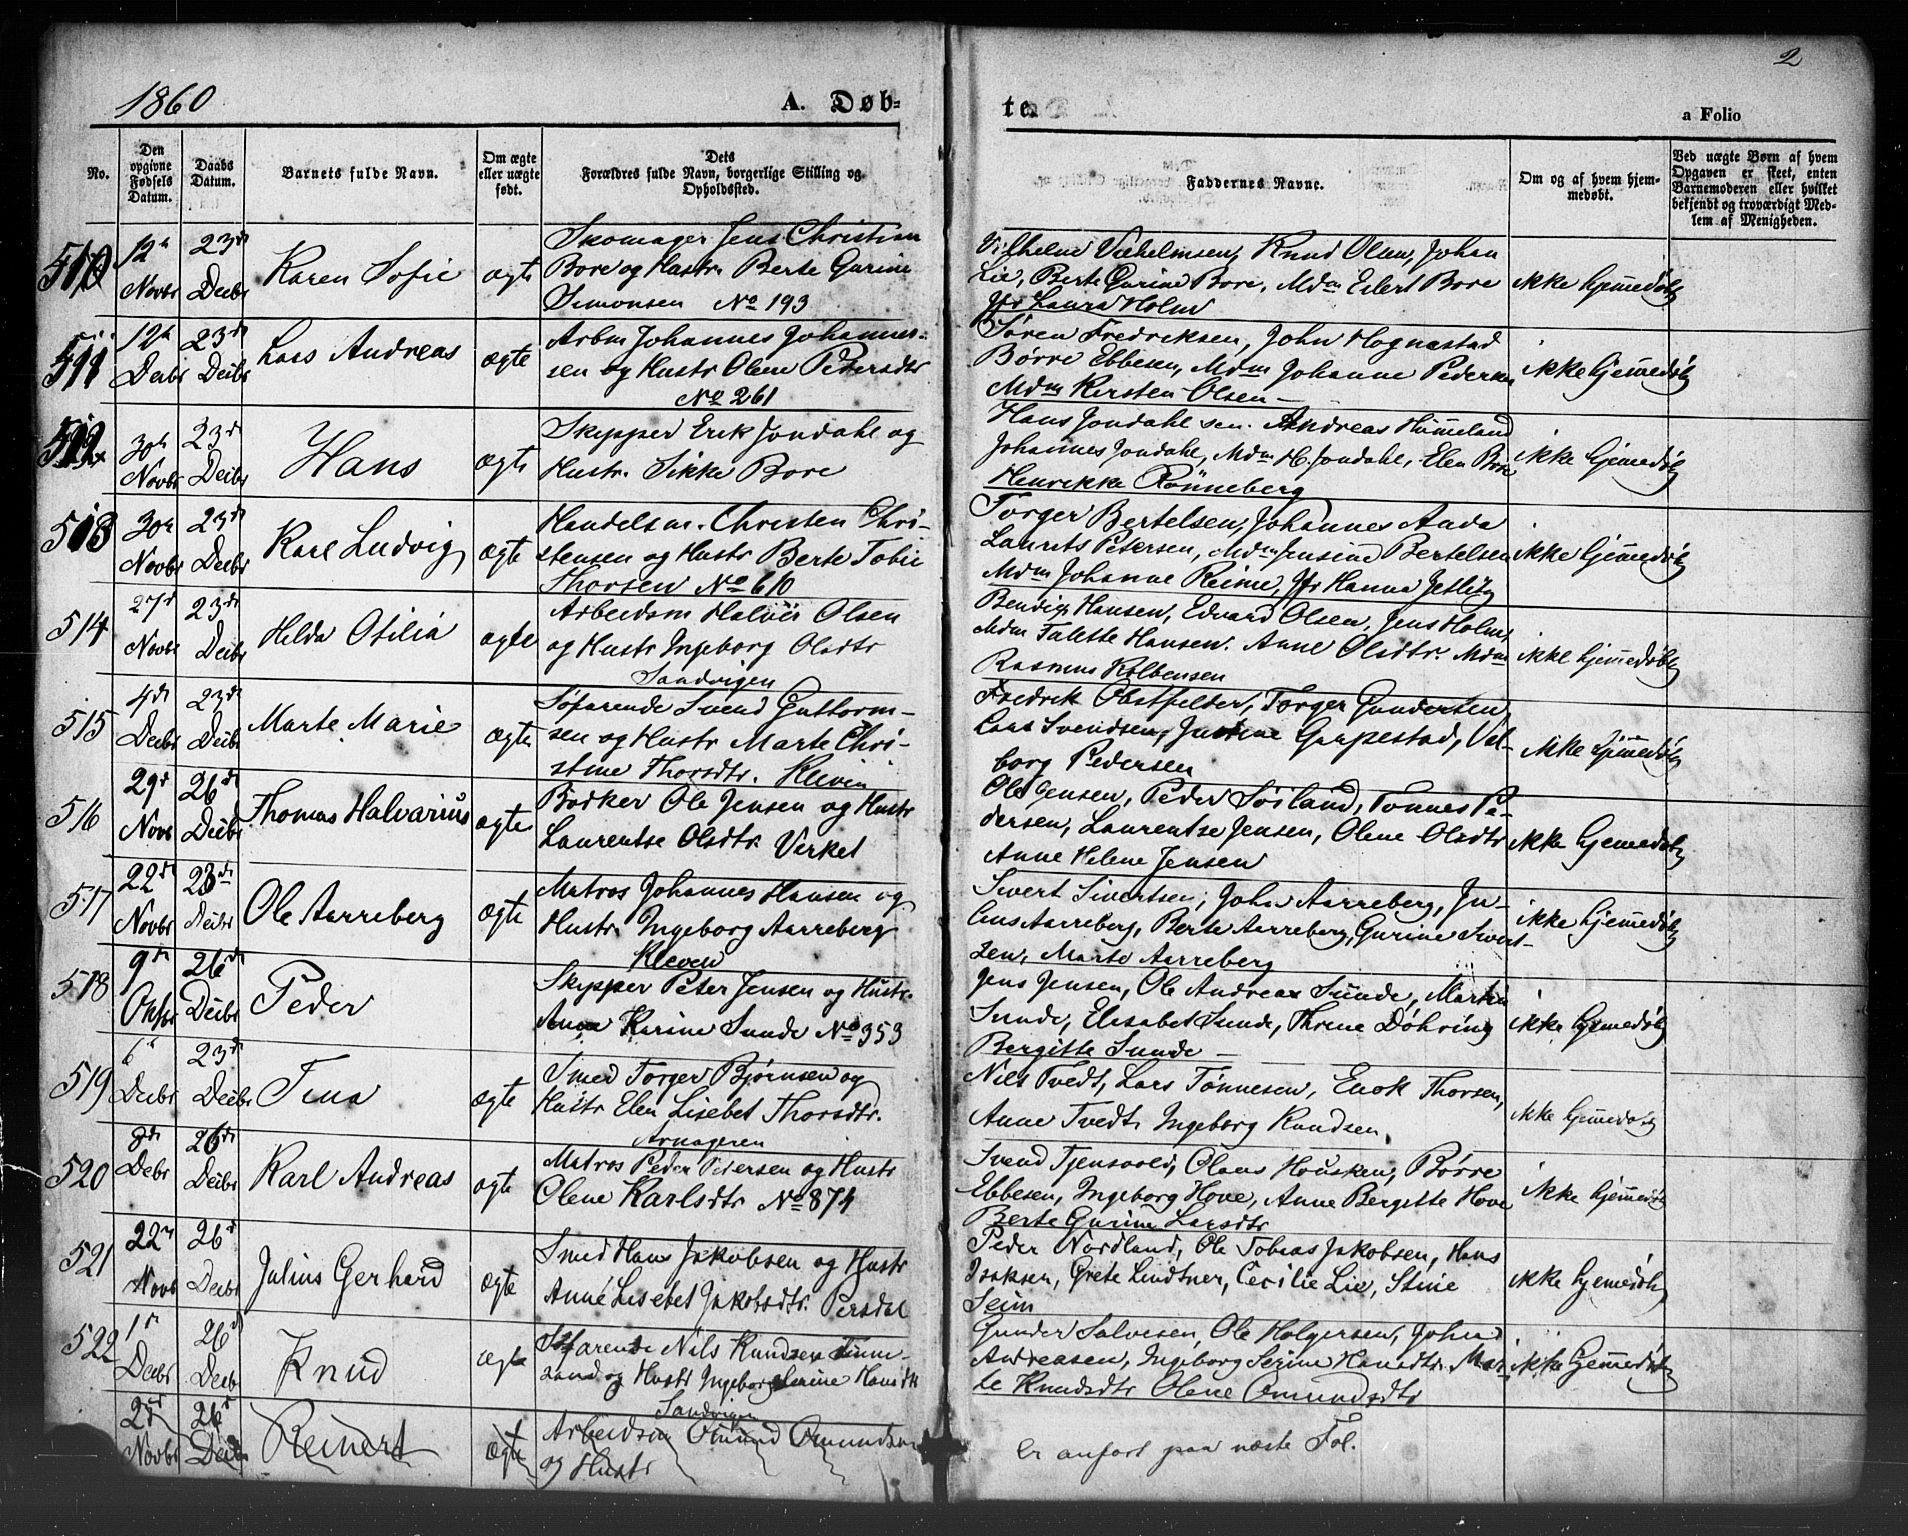 1860
2
A. Døb=
te.
a Folio
No.
Den opgivne Fødsels Datum.
Daabs Datum.
Barnets fulde Navn.
Om ægte eller uægte født.
Dets Forældres fulde Navn, borgerlige Stilling og Opholdssted.
Faddernes Navne.
Om og af hvem hjemmedøbt.
Ved uægte Børn af hvem Opgaven er skeet, enten Barnemoderen eller hvilket bekjendt og troværdigt Medlem af Menigheden.
510
12te Novbr
23de Decbr
Karen Sofie
ægte
Skomager Jens Christian
Bore og Hustr. Berte Gurine
Simonsen No 193
Vilhelm Vilhelmsen, Knud Olsen, Johan
Lie, Berte Gurine Bore, Mdm Eilert Bore
Jfr Laura Holm
ikke hjemmedøbt
511
12te Decbr
23de Decbr
Lars Andreas
ægte
Arbm Johannes Johannes-
sen og Hustr Olene Pedersdtr
No 261
Søren Fredriksen, John Hognestad
Børre Ebbesen, Mdm Johanne Pedersen
Mdm Kirsten Olsen
ikke hjemmedøbt
512
30te Novbr
23de Decbr
Hans
ægte
Skipper Erik Jondahl og
Hustr. Sikke Bore
Hans Jondahl sen. Andreas Hummeland
Johannes Jondahl, Mdm H. Jondahl, Elen Bore
Henrikke Rönneberg
ikke hjemmedøbt
513
30te Novbr
23de Decbr
Karl Ludvig
ægte
Handelsm. Christen Chri-
stensen og Hustr Berte Tobie
Thorsen No 610
Torger Bertelsen, Johannes Aada
Laurits Petersen, Mdm Jensine Bertelsen
Mdm Johanne Reime, Jfr Hanna Jetlity
ikke hjemmedøbt
514
27de Novbr
23de Decbr
Hilda Otilia
ægte
Arbeidsm Halvor Olsen
og Hustr Ingeborg Olsdtr
Sandvigen
Bendix Hansen, Edvard Olsen, Jens Holm,
Mdm Talette Hansen. Anne Olsdtr. Mdm
Rasmus Kolbensen
ikke hjemmedøbt
515
4de Decbr
23de Decbr
Marte Marie
ægte
Søfarende Svend Guttorm-
sen og Hustr Marte Chri-
stine Thorsdtr. Kleven
Fredrik Obstfelder, Torger Gundersen
Lars Svendsen, Justine Gaupestad, Val-
borg Pedersen
ikke hjemmedøbt
516
29de Novb
26de Decbr
Thomas Halvarius
ægte
Bødker Ole Jensen og Hustr
Laurentse Olsdtr. Verket
Ole Jensen, Peder Søiland, Tønnes Pe-
dersen, Laurentse Jensen, Olene Olsdtr
Anne Helene Jensen
ikke hjemmedøbt
517
22de Novbr
23de Decbr
Ole Aarreberg
ægte
Matros Johannes Hansen og
Hustr. Ingeborg Aarreberg
Kleven
Sivert Sivertsen, John Aarreberg, Ju-
lius Aarreberg, Berte Aarreberg, Gurine Sivert-
sen, Marte Aarreberg
ikke hjemmedøbt
518
9de Oktbr
26de Decbr
Peder
Skipper Peter Jensen og Hustr.
Anne Karine Sunde No 353
Jens Jensen, Ole Andreas Sunde, Martin
Sunde, Elisabet Sunde, Threne Døhring
Bergitte Sunde
ikke hjemmedøbt
519
6te Decbr
23de Decbr
Tina
ægte
Smed Torger Bjørnsen og
Hustr Elen Lisebet Thorsdtr.
Arnageren
Nils Tvedt, Lars Tønnesen, Enok Thorsen,
Anne Tvedt, Ingeborg Knudsen
ikke hjemmedøbt
520
8de Debr
26de Decbr
Karl Andreas
ægte
Matros Peder Petersen og Hustr
Olene Karlsdtr No 874
Svend Tjensvold, Olaus Housken, Børre
Ebbesen, Ingeborg Hove, Anne Bergitte Hove
Berte Gurine Larsdtr
ikke hjemmedøbt
521
22de Novb
26de Decbr
Julius Gerhard
ægte
Smed Hans Jakobsen og Hustr
Anne Lisebet Jakobsdtr. Persdal
Peder Nordland, Ole Tobias Jakobsen, Hans
Isaksen, Grete Lindtner, Cecilie Lie, Stine
Seim
ikke hjemmedøbt
522
1ste Decbr
26de Decbr
Knud
ægte
Søfarende Nils Knudsen
og Hustr Ingeborg Serine Hansdtr
Sandvigen
Gunder Salvesen, Ole Holgersen, John
Andreasen, Ingeborg Serine Hansdtr. Mar-
te Knudsdtr Olene Omundsdtr
ikke hjemmedøbt
2de Novbr
26de Decbr
Reinert
ægte
Arbeidsm Omund Omundsen
og Hustr
Er anført paa næste Fol.